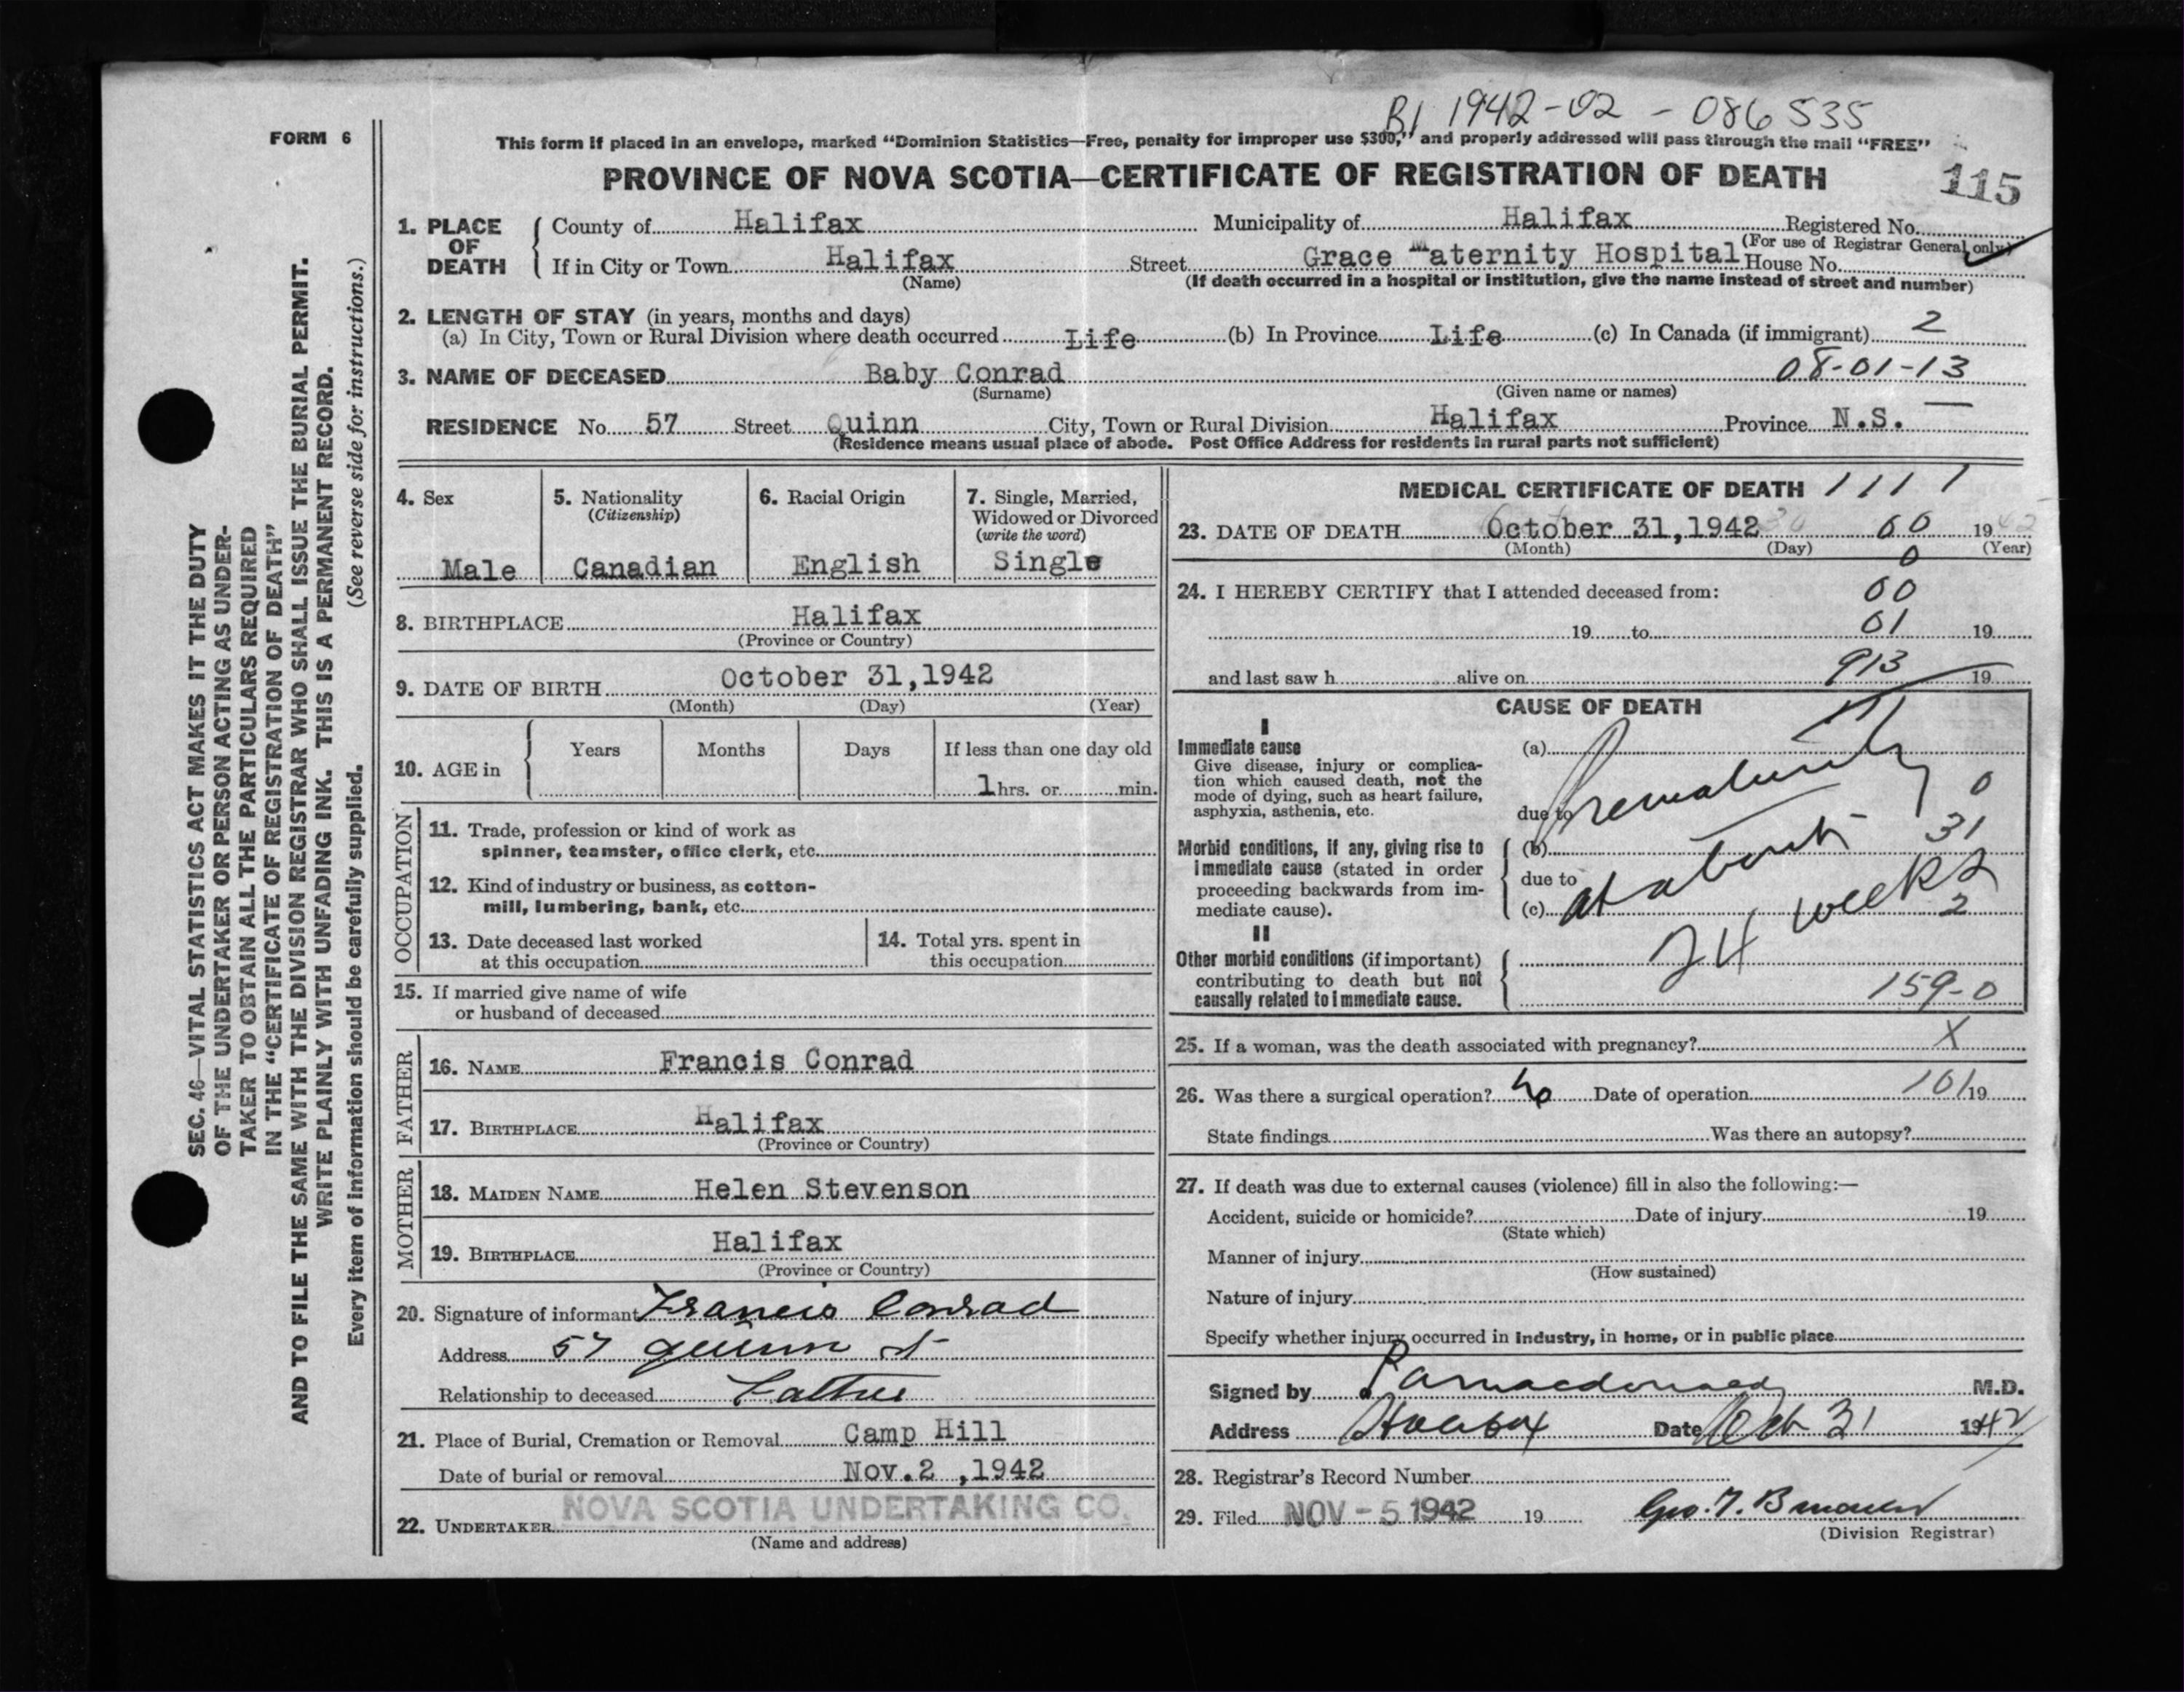 B1 1942-02-086535
FORM 6
This form if placed in an envelope, marked "Dominion Statistics—Free, penalty for improper use $300," and properly addressed will pass through the mail "FREE"
PROVINCE OF NOVA SCOTIA—CERTIFICATE OF REGISTRATION OF DEATH
115
1. PLACE OF DEATH
County of Halifax Municipality of Halifax Registered No.
(For use of Registrar General only)
If in City or Town Halifax Street Grace Maternity Hospital House No.
(Name) (If death occurred in a hospital or institution, give the name instead of street and number)
2. LENGTH OF STAY (in years, months and days)
(a) In City, Town or Rural Division where death occurred Life (b) In Province Life (c) In Canada (if immigrant) 2
08-01-13
3. NAME OF DECEASED Baby Conrad
(Surname) (Given name or names)
RESIDENCE No. 57 Street Quinn City, Town or Rural Division Halifax Province N.S.
(Residence means usual place of abode. Post Office Address for residents in rural parts not sufficient)
SEC. 46—VITAL STATISTICS ACT MAKES IT THE DUTY
OF THE UNDERTAKER OR PERSON ACTING AS UNDER-
TAKER TO OBTAIN ALL THE PARTICULARS REQUIRED
IN THE "CERTIFICATE OF REGISTRATION OF DEATH"
AND TO FILE THE SAME WITH THE DIVISION REGISTRAR WHO SHALL ISSUE THE BURIAL PERMIT.
WRITE PLAINLY WITH UNFADING INK. THIS IS A PERMANENT RECORD.
Every item of information should be carefully supplied. (See reverse side for instructions.)
4. Sex
Male
5. Nationality
(Citizenship)
Canadian
6. Racial Origin
English
7. Single, Married,
Widowed or Divorced
(write the word)
Single
8. BIRTHPLACE Halifax
(Province or Country)
9. DATE OF BIRTH October 31,1942
(Month) (Day) (Year)
10. AGE in Years Months Days If less than one day old
1 hrs. or min.
OCCUPATION
11. Trade, profession or kind of work as
spinner, teamster, office clerk, etc.
12. Kind of industry or business, as cotton-
mill, lumbering, bank, etc.
13. Date deceased last worked
at this occupation
14. Total yrs. spent in
this occupation
15. If married give name of wife
or husband of deceased
FATHER
16. NAME Francis Conrad
17. BIRTHPLACE Halifax
(Province or Country)
MOTHER
18. MAIDEN NAME Helen Stevenson
19. BIRTHPLACE Halifax
(Province or Country)
20. Signature of informant Francis Conrad
Address 57 Quinn St
Relationship to deceased Father
21. Place of Burial, Cremation or Removal Camp Hill
Date of burial or removal Nov.2 ,1942
22. UNDERTAKER NOVA SCOTIA UNDERTAKING CO.
(Name and address)
MEDICAL CERTIFICATE OF DEATH 1111
23. DATE OF DEATH October 31,1942 00 1942
(Month) (Day) (Year)
0
24. I HEREBY CERTIFY that I attended deceased from: 00
19 to 01 19
and last saw h alive on 913 19
CAUSE OF DEATH
I
Immediate cause
Give disease, injury or complica-
tion which caused death, not the
mode of dying, such as heart failure,
asphyxia, asthenia, etc.
(a)
due to Prematurity 0
Morbid conditions, if any, giving rise to
immediate cause (stated in order
proceeding backwards from im-
mediate cause).
(b) 31
due to
(c) at about 24 weeks
2
II
Other morbid conditions (if important)
contributing to death but not
causally related to immediate cause.
159-0
25. If a woman, was the death associated with pregnancy? X
26. Was there a surgical operation? no Date of operation 101 19
State findings Was there an autopsy?
27. If death was due to external causes (violence) fill in also the following:—
Accident, suicide or homicide? Date of injury 19
(State which)
Manner of injury
(How sustained)
Nature of injury
Specify whether injury occurred in industry, in home, or in public place
Signed by P A Macdonald M.D.
Address Halifax Date Oct 31 1942
28. Registrar's Record Number
29. Filed NOV - 5 1942 19
(Division Registrar)